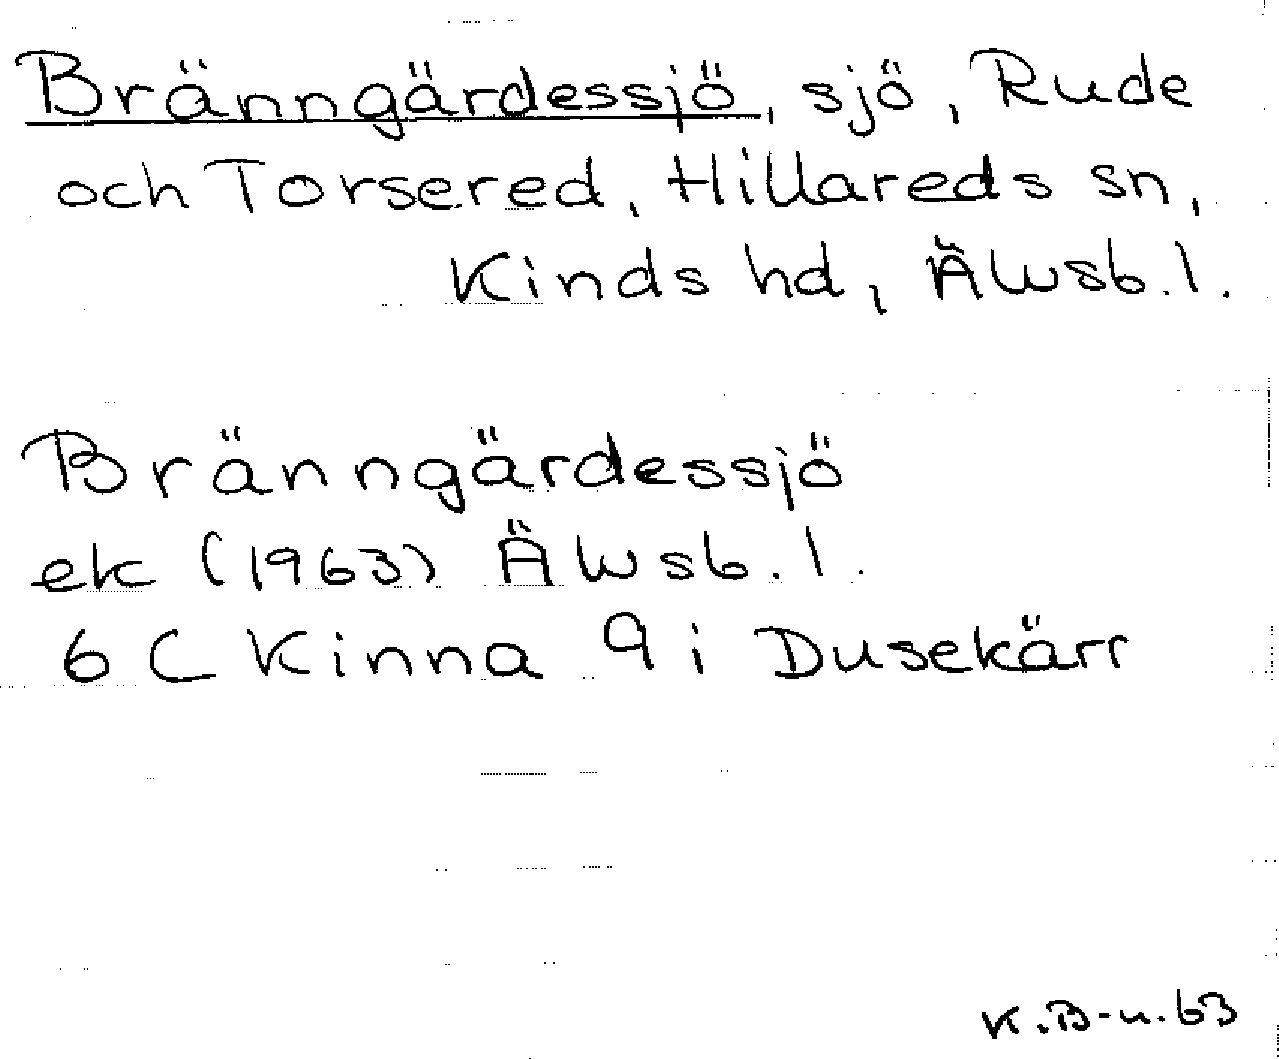 Bränngärdessjö, sjö, Rude
och Torsered, Hillareds sn,
Kinds hd, Älvsb. l.
Bränngärdessjö
ek (1963) Älvsb. l.
6 C Kinna 9 i Dusekärr
K.B-n. 63